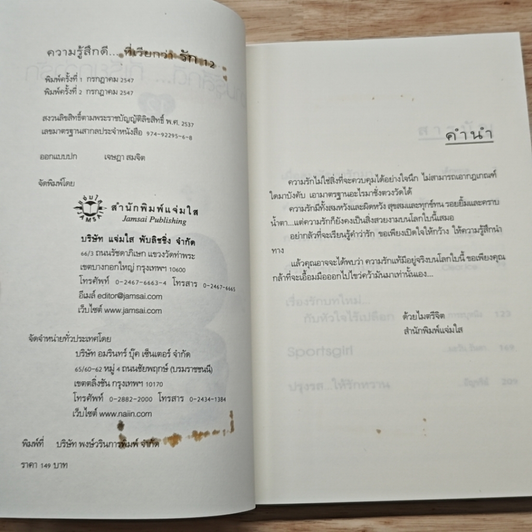 ความรู้สึกดี... ที่เรียกว่า รัก 12
พิมพ์ครั้งที่ 1 กรกฎาคม 2547
พิมพ์ครั้งที่ 2 กรกฎาคม 2547
สงวนลิขสิทธิ์ตามพระราชบัญญัติลิขสิทธิ์ พ.ศ. 2537
เลขมาตรฐานสากลประจำหนังสือ 974-92295-6-8
ออกแบบปก เจษฎา สมจิต
จัดพิมพ์โดย
สำนักพิมพ์แจ่มใส
Jamsai Publishing
บริษัท แจ่มใส พับลิชชิ่ง จำกัด
66/3 ถนนรัชดาภิเษก แขวงวัดท่าพระ
เขตบางกอกใหญ่ กรุงเทพฯ 10600
โทรศัพท์ 0-2467-6663-4 โทรสาร 0-2467-6663
อีเมล์ editor@jamsai.com
เว็บไซต์ www.jamsai.com
จัดจำหน่ายทั่วประเทศโดย
บริษัท อมรินทร์ บุ๊ค เซ็นเตอร์ จำกัด
65/60-62 หมู่ 4 ถนนชัยพฤกษ์ (บรมราชชนนี)
เขตตลิ่งชัน กรุงเทพฯ 10170
โทรศัพท์ 0-2882-2000 โทรสาร 0-2434-1384
เว็บไซต์ www.naiin.com
พิมพ์ที่ บริษัท พงษ์วรินการพิมพ์ จำกัด
ราคา 149 บาท
คำนำ
ความรักไม่ใช่สิ่งที่จะควบคุมได้อย่างใจนึก ไม่สามารถเอากฎเกณฑ์
ใดมาบังคับ เอามาตรฐานอะไรมาชั่งตวงวัดได้
ความรักมีทั้งสมหวังและผิดหวัง สุขสมและทุกข์ทน รอยยิ้มและคราบ
น้ำตา...แต่ความรักก็ยังคงเป็นสิ่งสวยงามบนโลกใบนี้เสมอ
อย่ากลัวที่จะเรียนรู้คำว่ารัก ขอเพียงเปิดใจให้กว้าง ให้ความรู้สึกนำ
ทาง
แล้วคุณอาจจะได้พบว่า ความรักแท้มีอยู่จริงบนโลกใบนี้ ขอเพียงคุณ
กล้าที่จะเอื้อมมือออกไปไขว่คว้ามันมาเท่านั้นเอง...
ด้วยไมตรีจิต
สำนักพิมพ์แจ่มใส